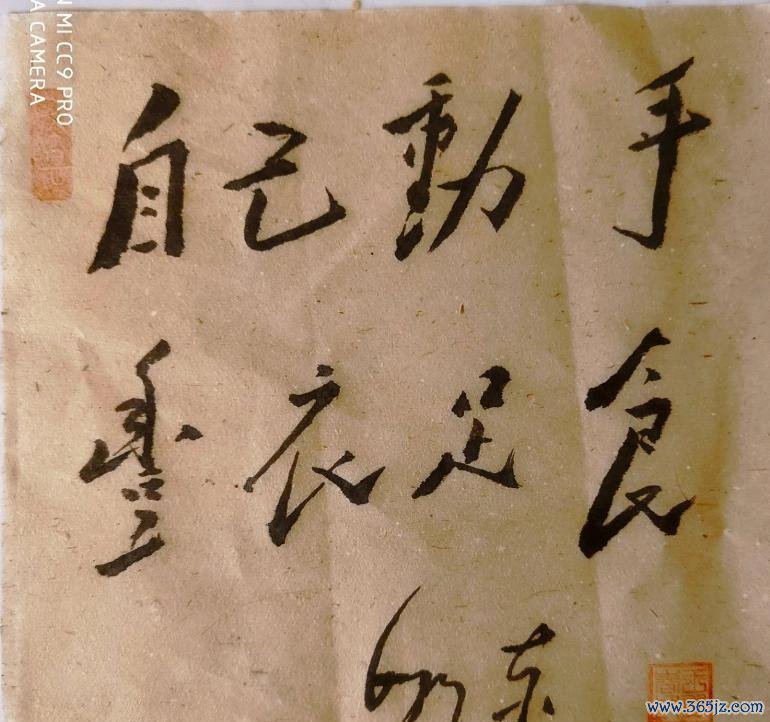 自己動手
豐衣足食
东
MI CC9 PRO
A CAMERA
www.365jz.com